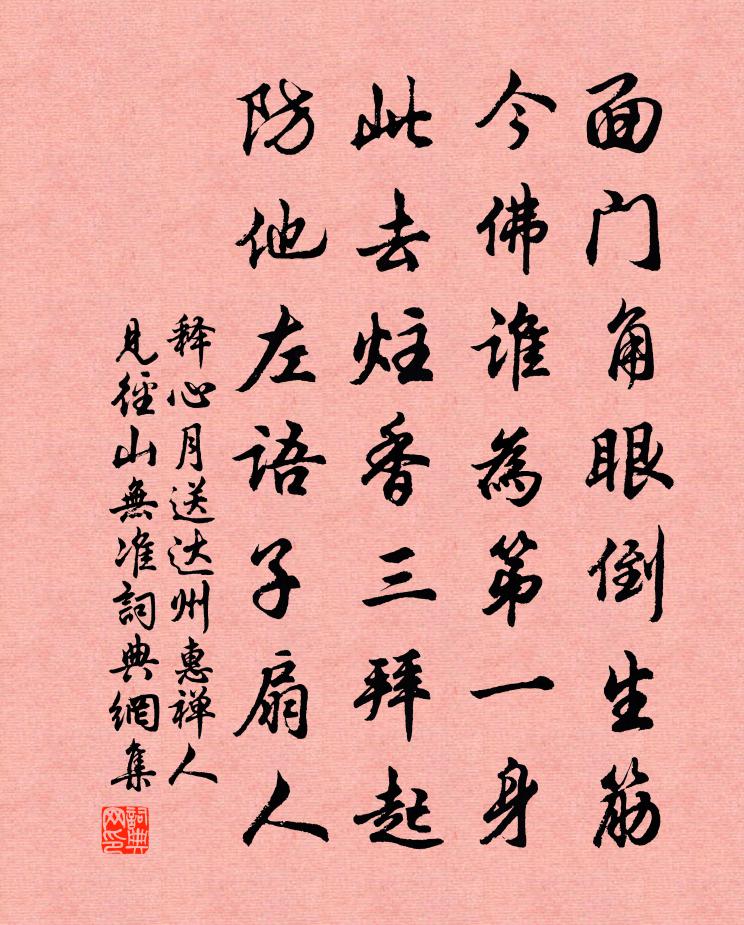 面门角眼倒生筋
今佛谁為第一身
此去炷香三拜起
防他左语子扇人
释心月送达州惠禅人
见径山無准詞典網集
詞典网印